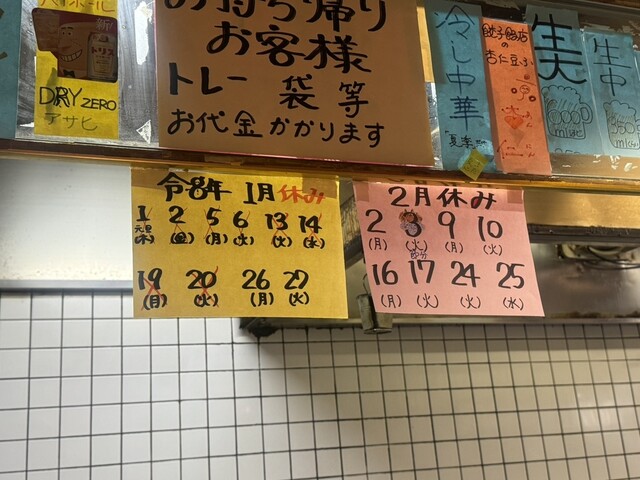 ハイボール
新!
トリス
DRY ZERO
アサヒ
お持ち帰り
お客様
トレー 袋 等
お代金かかります
冷し中華
夏季
餃子飯店の
杏仁豆ふ
生大
生中
令8年 1月 休み
1 2 5 6 13 14
元旦
(木) (金) (月) (火) (火) (水)
19 20 26 27
(月) (火) (月) (火)
2月 休み
2 9 10
(月) (火) (月) (火)
節分
16 17 24 25
(月) (火) (火) (水)